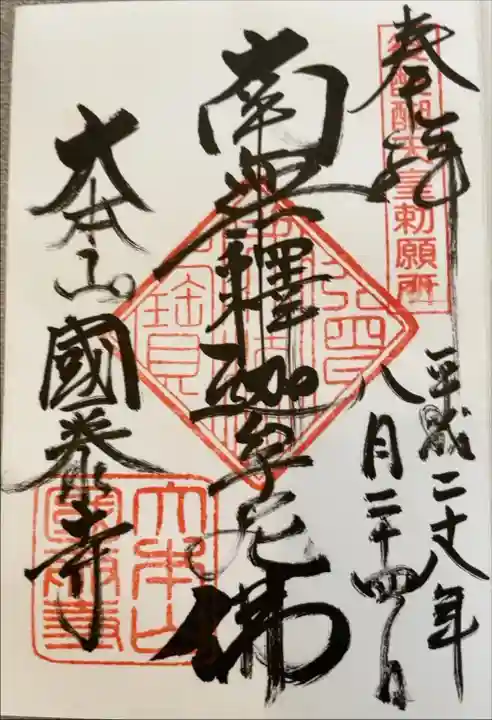 奉拝
後醍醐天皇勅願所
平成二十八年
八月二十四日
南無釋迦牟尼佛
大本山國泰寺
大本山
國泰寺